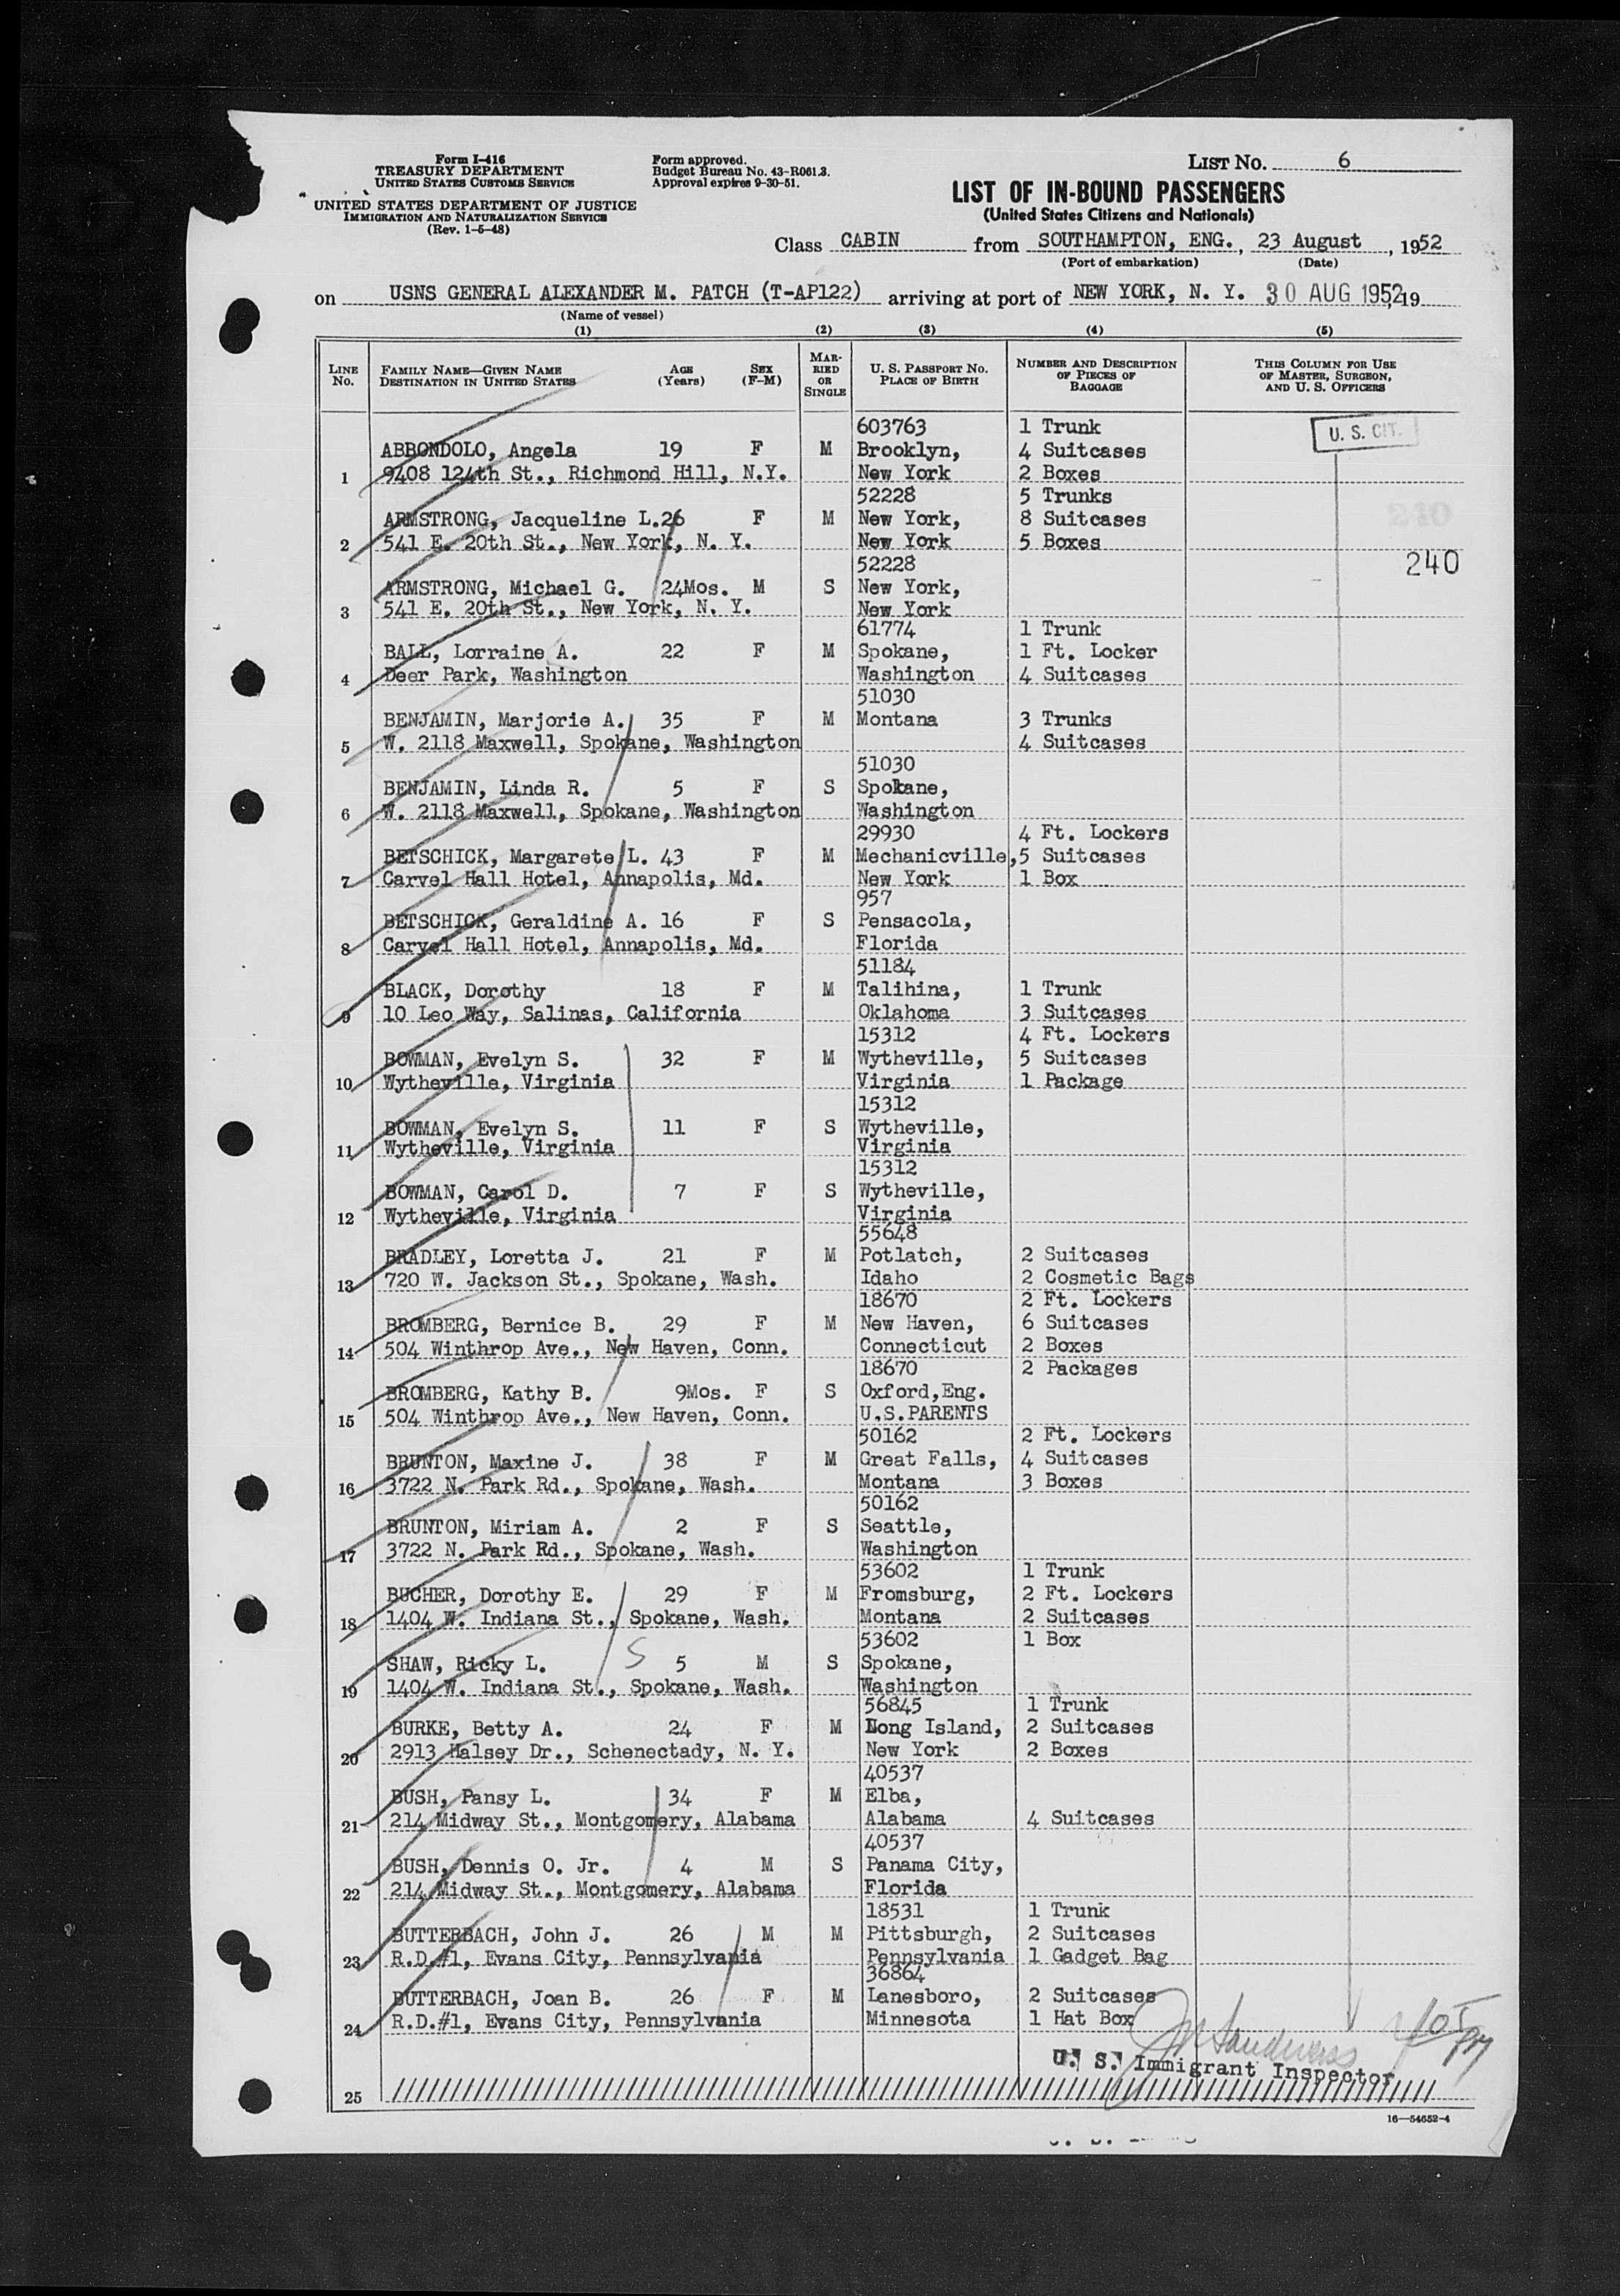 Form I-416
TREASURY DEPARTMENT
UNITED STATES CUSTOMS SERVICE
UNITED STATES DEPARTMENT OF JUSTICE
IMMIGRATION AND NATURALIZATION SERVICE
(Rev. 1-5-48)
Form approved.
Budget Bureau No. 43-R061.3.
Approval expires 9-30-51.
LIST No. 6
LIST OF IN-BOUND PASSENGERS
(United States Citizens and Nationals)
Class CABIN from SOUTHAMPTON, ENG., 23 August, 1952
(Port of embarkation) (Date)
on USNS GENERAL ALEXANDER M. PATCH (T-AP122) arriving at port of NEW YORK, N. Y. 30 AUG 1952, 19
(Name of vessel)
(1) (2) (3) (4) (5)
LINE No. FAMILY NAME—GIVEN NAME DESTINATION IN UNITED STATES AGE (Years) SEX (F-M) MARRIED OR SINGLE U. S. PASSPORT NO. PLACE OF BIRTH NUMBER AND DESCRIPTION OF PIECES OF BAGGAGE THIS COLUMN FOR USE OF MASTER, SURGEON, AND U. S. OFFICERS
603763 1 Trunk U. S. CIT.
ABBONDOLO, Angela 19 F M Brooklyn, 4 Suitcases
1 9408 124th St., Richmond Hill, N.Y. New York 2 Boxes
52228 5 Trunks
ARMSTRONG, Jacqueline L. 26 F M New York, 8 Suitcases 240
2 541 E. 20th St., New York, N. Y. New York 5 Boxes
52228 240
ARMSTRONG, Michael G. 24Mos. M S New York,
3 541 E. 20th St., New York, N. Y. New York
61774 1 Trunk
BALL, Lorraine A. 22 F M Spokane, 1 Ft. Locker
4 Deer Park, Washington Washington 4 Suitcases
51030
BENJAMIN, Marjorie A. 35 F M Montana 3 Trunks
5 W. 2118 Maxwell, Spokane, Washington 4 Suitcases
51030
BENJAMIN, Linda R. 5 F S Spokane,
6 W. 2118 Maxwell, Spokane, Washington Washington
29930 4 Ft. Lockers
BETSCHICK, Margarete L. 43 F M Mechanicville, 5 Suitcases
7 Carvel Hall Hotel, Annapolis, Md. New York 1 Box
957
BETSCHICK, Geraldine A. 16 F S Pensacola,
8 Carvel Hall Hotel, Annapolis, Md. Florida
51184
BLACK, Dorothy 18 F M Talihina, 1 Trunk
9 10 Leo Way, Salinas, California Oklahoma 3 Suitcases
15312 4 Ft. Lockers
BOWMAN, Evelyn S. 32 F M Wytheville, 5 Suitcases
10 Wytheville, Virginia Virginia 1 Package
15312
BOWMAN, Evelyn S. 11 F S Wytheville,
11 Wytheville, Virginia Virginia
15312
BOWMAN, Carol D. 7 F S Wytheville,
12 Wytheville, Virginia Virginia
55648
BRADLEY, Loretta J. 21 F M Potlatch, 2 Suitcases
13 720 W. Jackson St., Spokane, Wash. Idaho 2 Cosmetic Bags
18670 2 Ft. Lockers
BROMBERG, Bernice B. 29 F M New Haven, 6 Suitcases
14 504 Winthrop Ave., New Haven, Conn. Connecticut 2 Boxes
18670 2 Packages
BROMBERG, Kathy B. 9Mos. F S Oxford,Eng.
15 504 Winthrop Ave., New Haven, Conn. U.S.PARENTS
50162 2 Ft. Lockers
BRUNTON, Maxine J. 38 F M Great Falls, 4 Suitcases
16 3722 N. Park Rd., Spokane, Wash. Montana 3 Boxes
50162
BRUNTON, Miriam A. 2 F S Seattle,
17 3722 N. Park Rd., Spokane, Wash. Washington
53602 1 Trunk
BUCHER, Dorothy E. 29 F M Fromsburg, 2 Ft. Lockers
18 1404 W. Indiana St., Spokane, Wash. Montana 2 Suitcases
53602 1 Box
SHAW, Ricky L. S 5 M S Spokane,
19 1404 W. Indiana St., Spokane, Wash. Washington
56845 1 Trunk
BURKE, Betty A. 24 F M Long Island, 2 Suitcases
20 2913 Halsey Dr., Schenectady, N. Y. New York 2 Boxes
40537
BUSH, Pansy L. 34 F M Elba,
21 214 Midway St., Montgomery, Alabama Alabama 4 Suitcases
40537
BUSH, Dennis O. Jr. 4 M S Panama City,
22 214 Midway St., Montgomery, Alabama Florida
18531 1 Trunk
BUTTERBACH, John J. 26 M M Pittsburgh, 2 Suitcases
23 R.D.#1, Evans City, Pennsylvania Pennsylvania 1 Gadget Bag
36864
BUTTERBACH, Joan B. 26 F M Lanesboro, 2 Suitcases
24 R.D.#1, Evans City, Pennsylvania Minnesota 1 Hat Box
U. S. Immigrant Inspector
25
16—54652-4